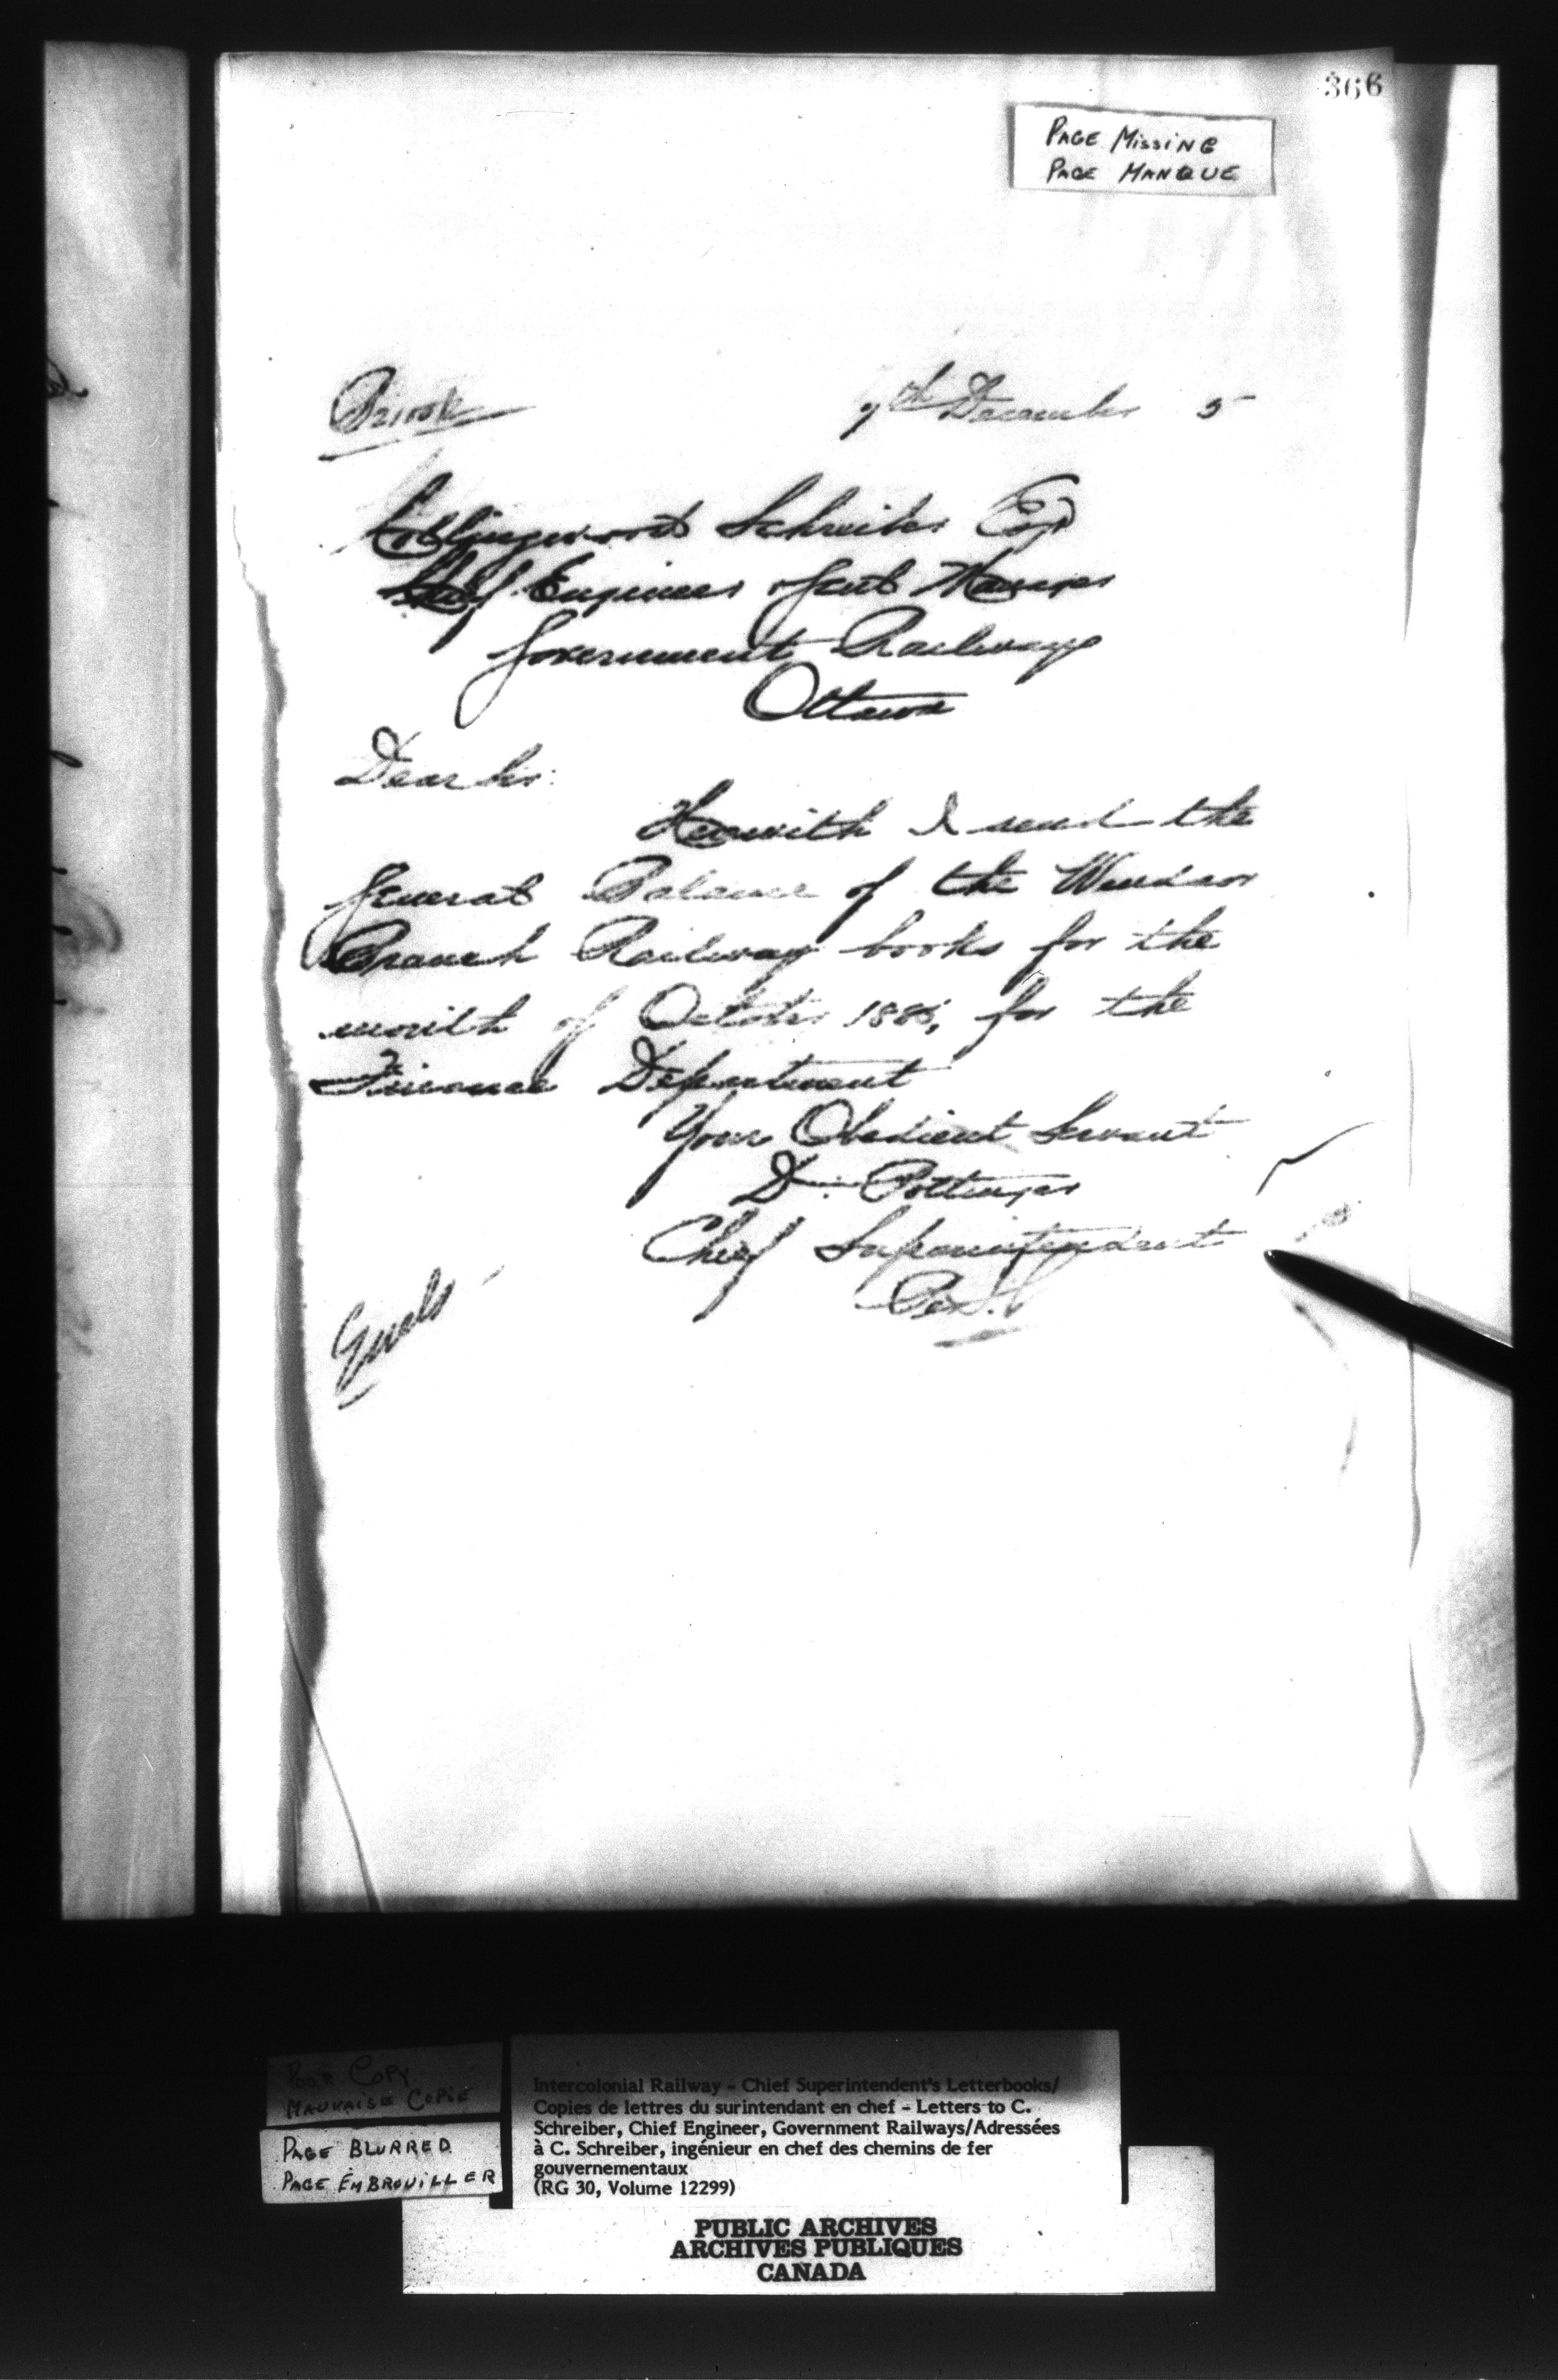 366
PAGE MISSING
PAGE MANQUE
7th December 5
Collingwood Schreiber Esq
Chief Engineer & Genl Manager
Government Railways
Ottawa
Dear Sir:
Herewith I send the
General Balance of the Windsor
Branch Railway books for the
month of October 1885, for the
Finance Department
Your Obedient Servant
D. Pottinger
Chief Superintendent
Encls
POOR COPY
MAUVAISE COPIE
PAGE BLURRED
PAGE EMBROUILLER
Intercolonial Railway – Chief Superintendent's Letterbooks/
Copies de lettres du surintendant en chef – Letters to C.
Schreiber, Chief Engineer, Government Railways/Adressées
à C. Schreiber, ingénieur en chef des chemins de fer
gouvernementaux
(RG 30, Volume 12299)
PUBLIC ARCHIVES
ARCHIVES PUBLIQUES
CANADA